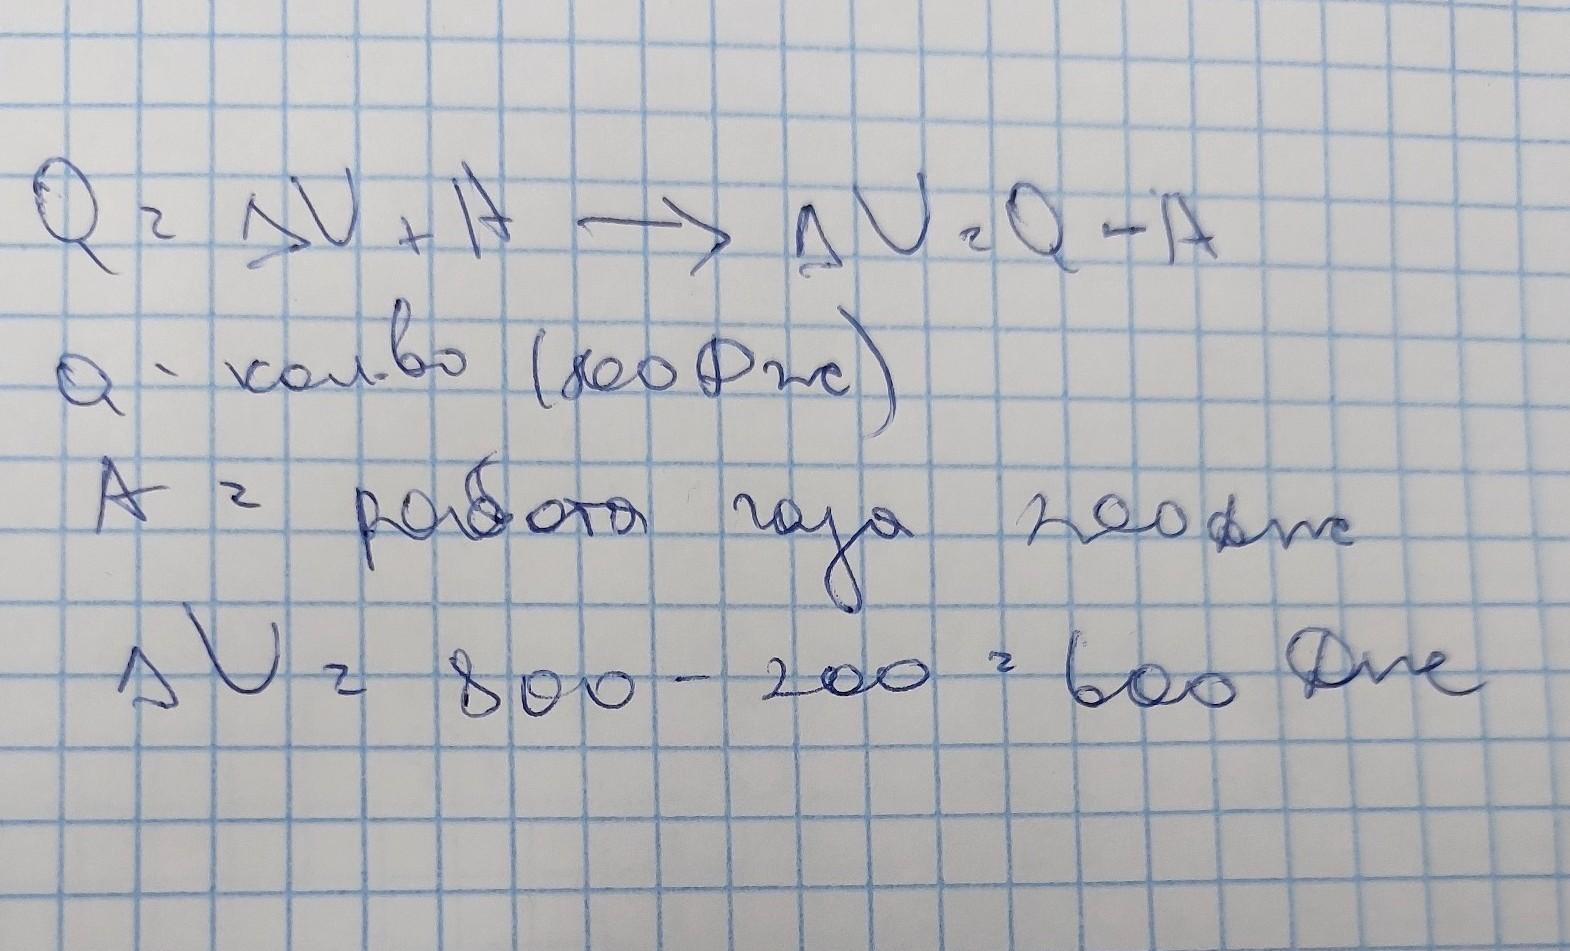 Q = ΔU + A → ΔU = Q - A
Q - кол-во (800 Дж)
A = работа газа 200 Дж
ΔU = 800 - 200 = 600 Дж